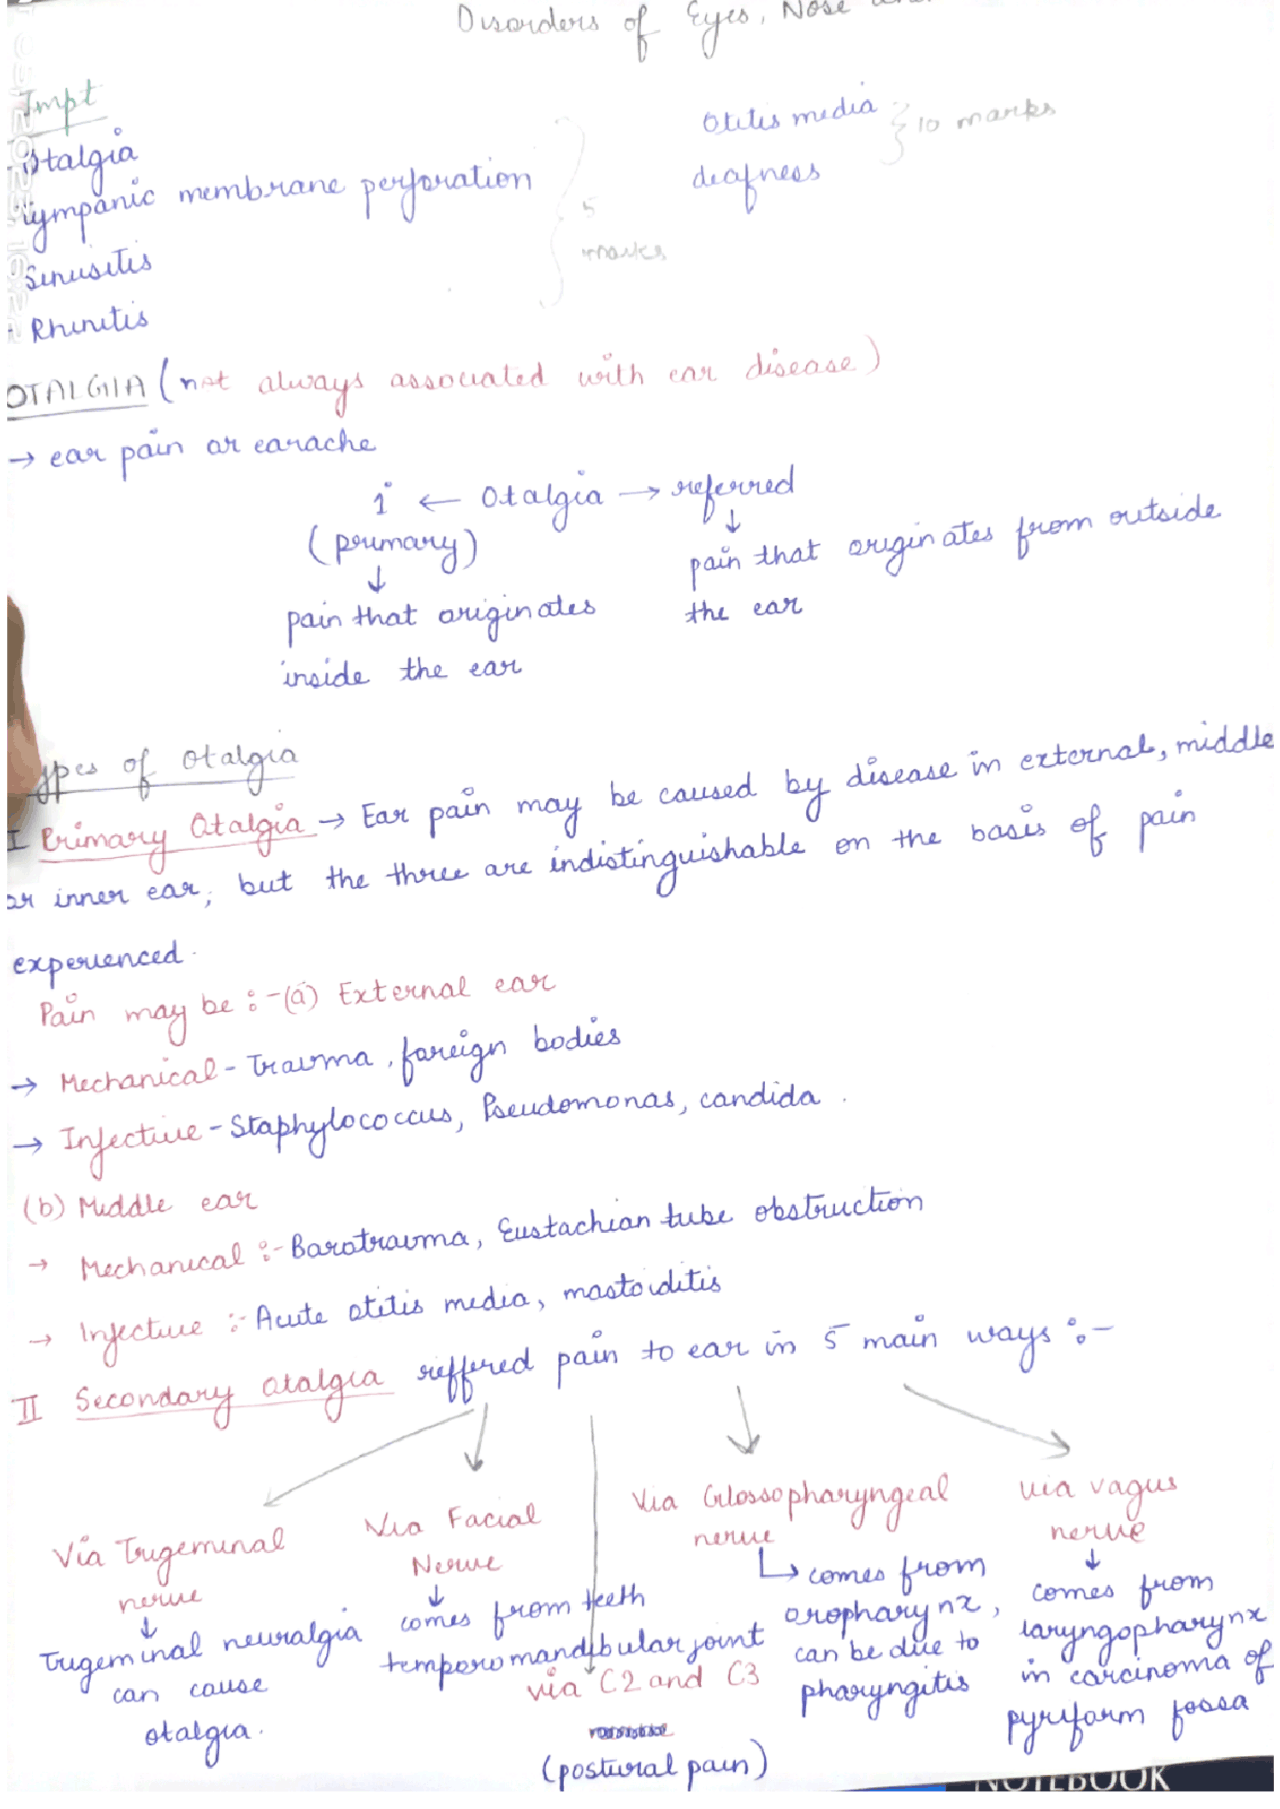 Disorders of Eyes, Nose
Impt
Otalgia
Tympanic membrane perforation
Sinusitis
- Rhinitis
5
marks
Otitis media
deafness
10 marks
OTALGIA (not always associated with ear disease)
→ ear pain or earache
1° ← Otalgia → referred
(primary)
↓
pain that originates
inside the ear
↓
pain that originates from outside
the ear
ypes of otalgia
I Primary Otalgia → Ear pain may be caused by disease in external, middle
or inner ear, but the three are indistinguishable on the basis of pain
experienced.
Pain may be :-(a) External ear
→ Mechanical - Trauma, foreign bodies
→ Infective - Staphylococcus, Pseudomonas, candida.
(b) Middle ear
→ Mechanical :- Barotrauma, Eustachian tube obstruction
→ Infective :- Acute otitis media, mastoiditis
II Secondary otalgia reffered pain to ear in 5 main ways :-
Via Trigeminal
nerve
↓
Trigeminal neuralgia
can cause
otalgia.
Via Facial
Nerve
↓
comes from teeth
temporomandibular joint
via C2 and C3
(postural pain)
Via Glossopharyngeal
nerve
↳ comes from
oropharynx,
can be due to
pharyngitis
via vagus
nerve
↓
comes from
laryngopharynx
in carcinoma of
pyriform fossa
NOTEBOOK